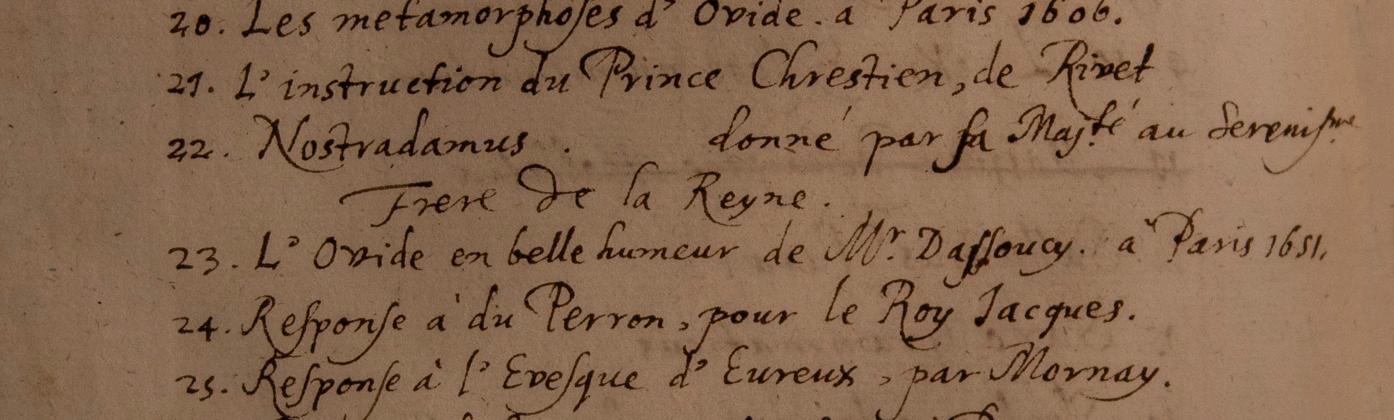 20. Les metamorphoses d' Ovide. a Paris 1606.
21. L' instruction du Prince Chrestien, de Rivet
22. Nostradamus . donné par sa Maj.té au Sereniss.me
Frere de la Reyne.
23. L' Ovide en belle humeur de Mr. Dassoucy. a Paris 1651.
24. Response à du Perron, pour le Roy Jacques.
25. Response à l' Evesque d' Eureux, par Mornay.